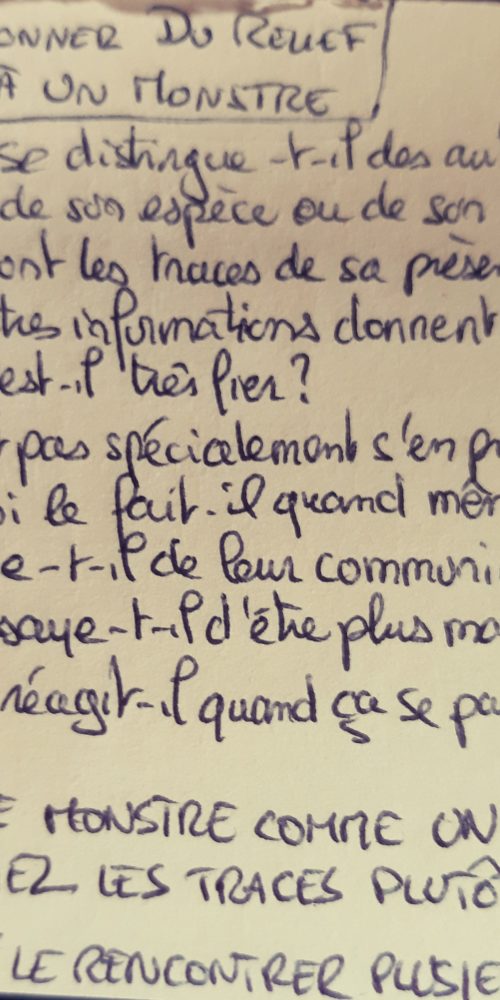 ONNER DU RELIEF
À UN MONSTRE
se distingue-t-il des au
de son espèce ou de son
ont les traces de sa présen
tres informations donnent
est-il très fier?
pas spécialement s'en pr
i le fait-il quand mêm
e-t-il de leur communi
saye-t-il d'être plus mo
réagit-il quand ça se pa
E MONSTRE COMME UN
EZ LES TRACES PLUTÔ
LE RENCONTRER PLUSIE